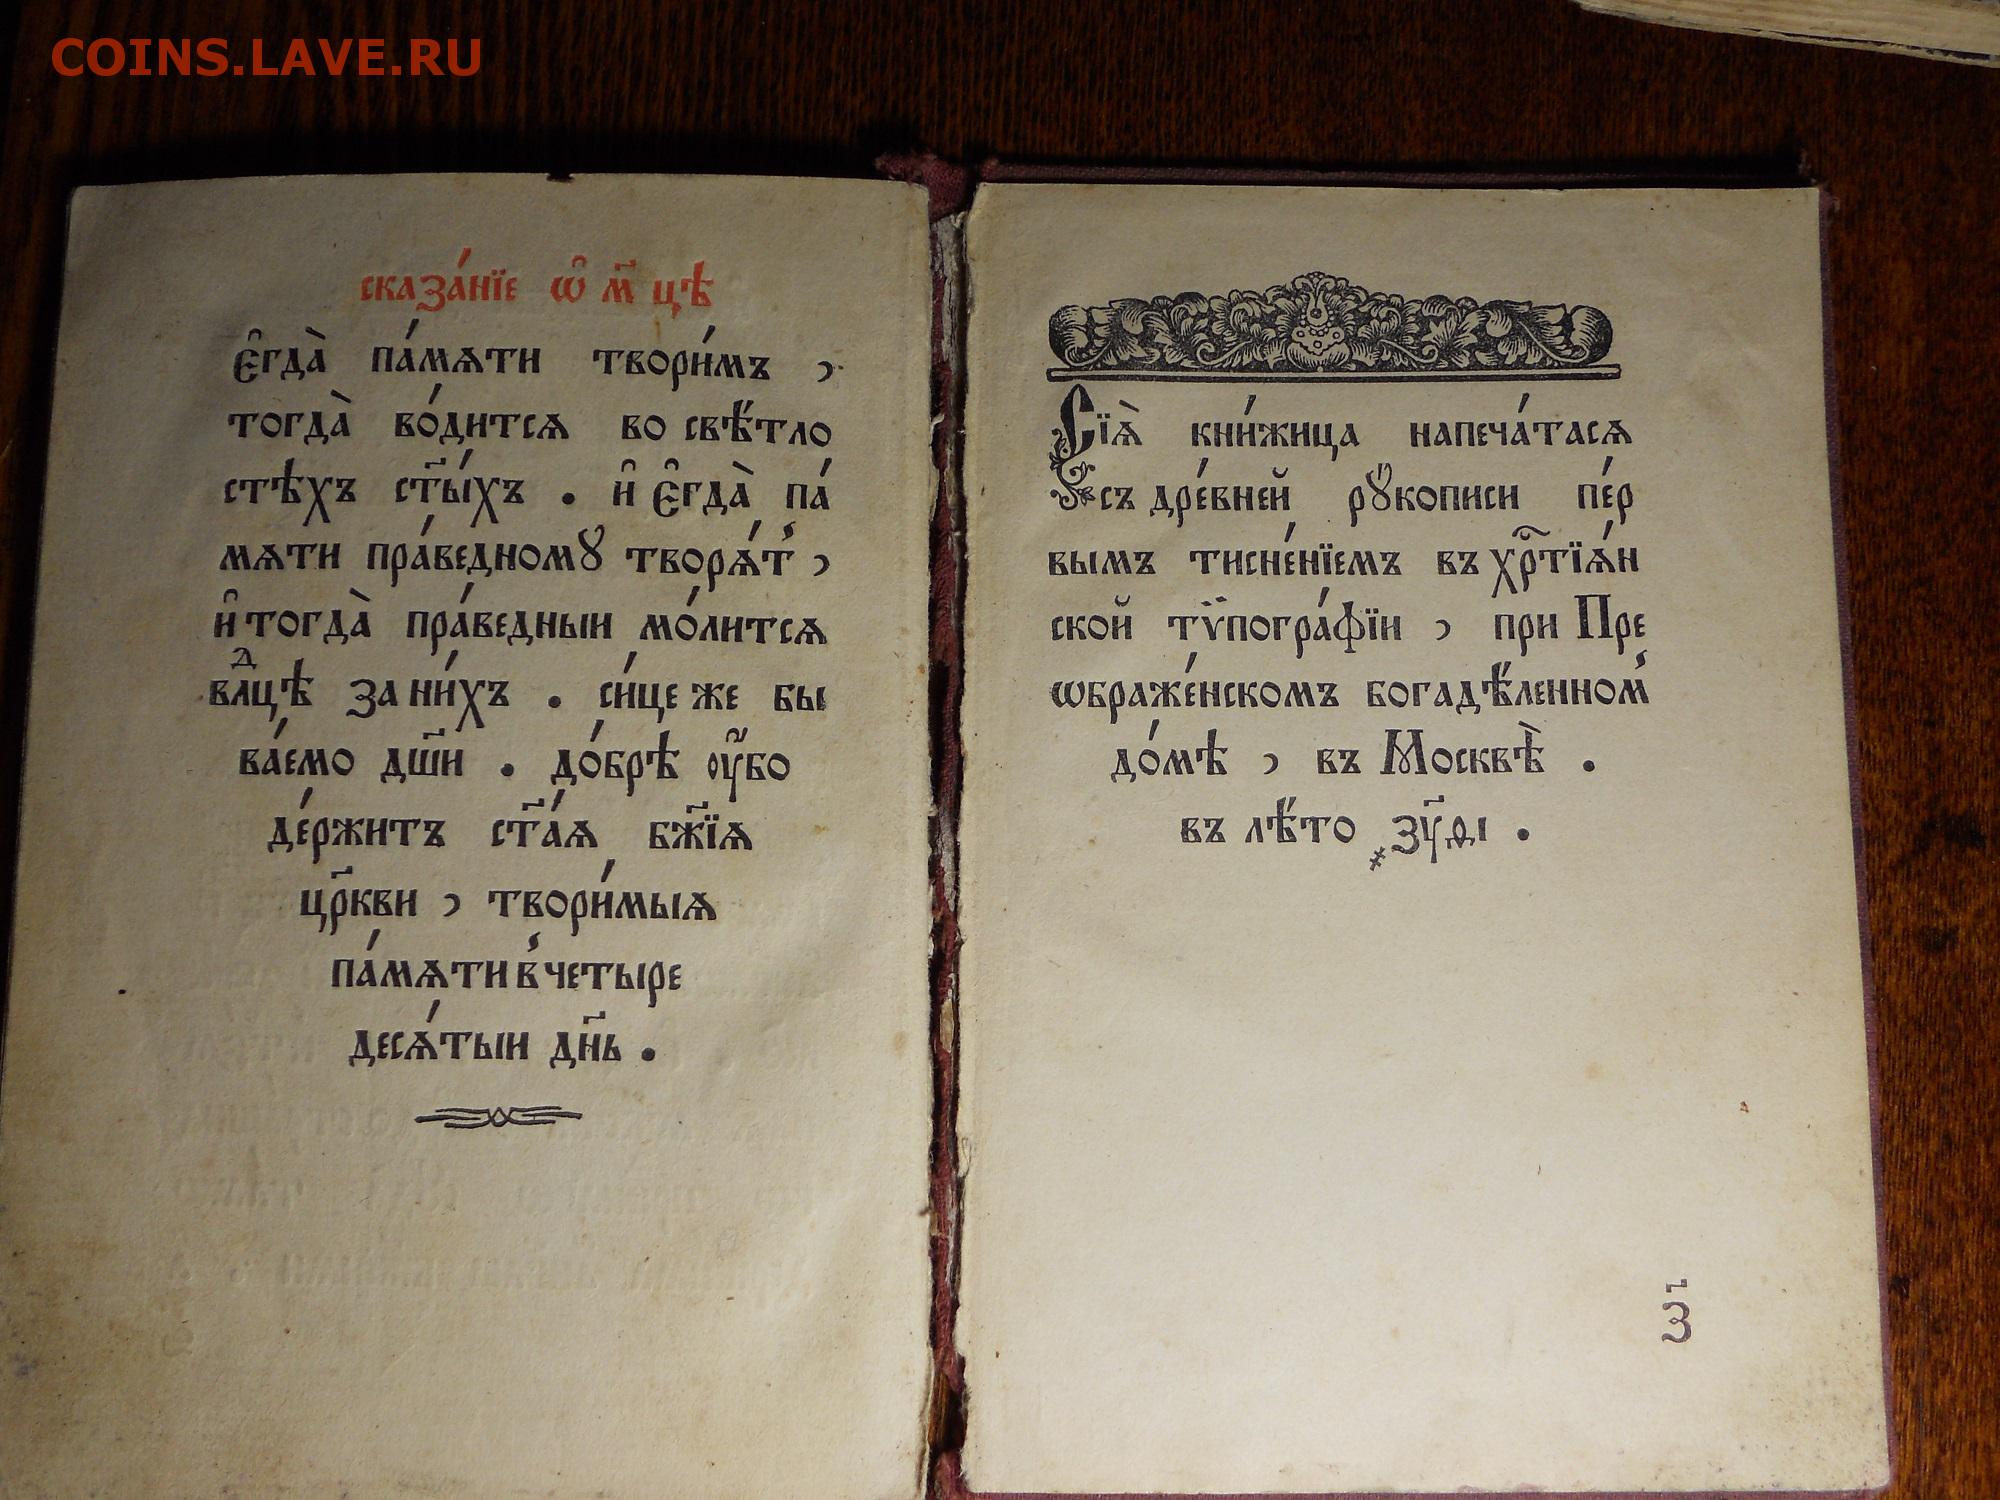 COINS.LAVE.RU
сказа́нїе ѡ҆ м҃ цѣ
є҆гда̀ па́мѧти твори́мъ ,
тогда̀ во́дитсѧ во свѣ́тло
стѣхъ ст҃ы́хъ . и҆ є҆гда̀ па́
мѧти пра́ведномꙋ творѧ́т ,
и҆ тогда̀ пра́ведныи мо́литсѧ
влⷣцѣ за ни́хъ . си́це же бы
ва́емо дш҃и . до́брѣ ᲂу҆́бо
де́ржитъ ст҃а́ѧ бж҃їѧ
цр҃кви , твори́мыѧ
па́мѧти в четыре
десѧ́тыи дн҃ь .
Сїѧ̀ кни́жица напеча́тасѧ
съ дре́вней рꙋ́кописи пе́р
вымъ тисне́нїемъ въ хрⷭ҇тїѧ́н
ской тѷпогра́фїи , при Пре
ѡбраже́нскомъ богадѣ́ленном
до́мѣ , въ Москвѣ̀ .
въ лѣ́то ҂зу҃ѳі .
з҃